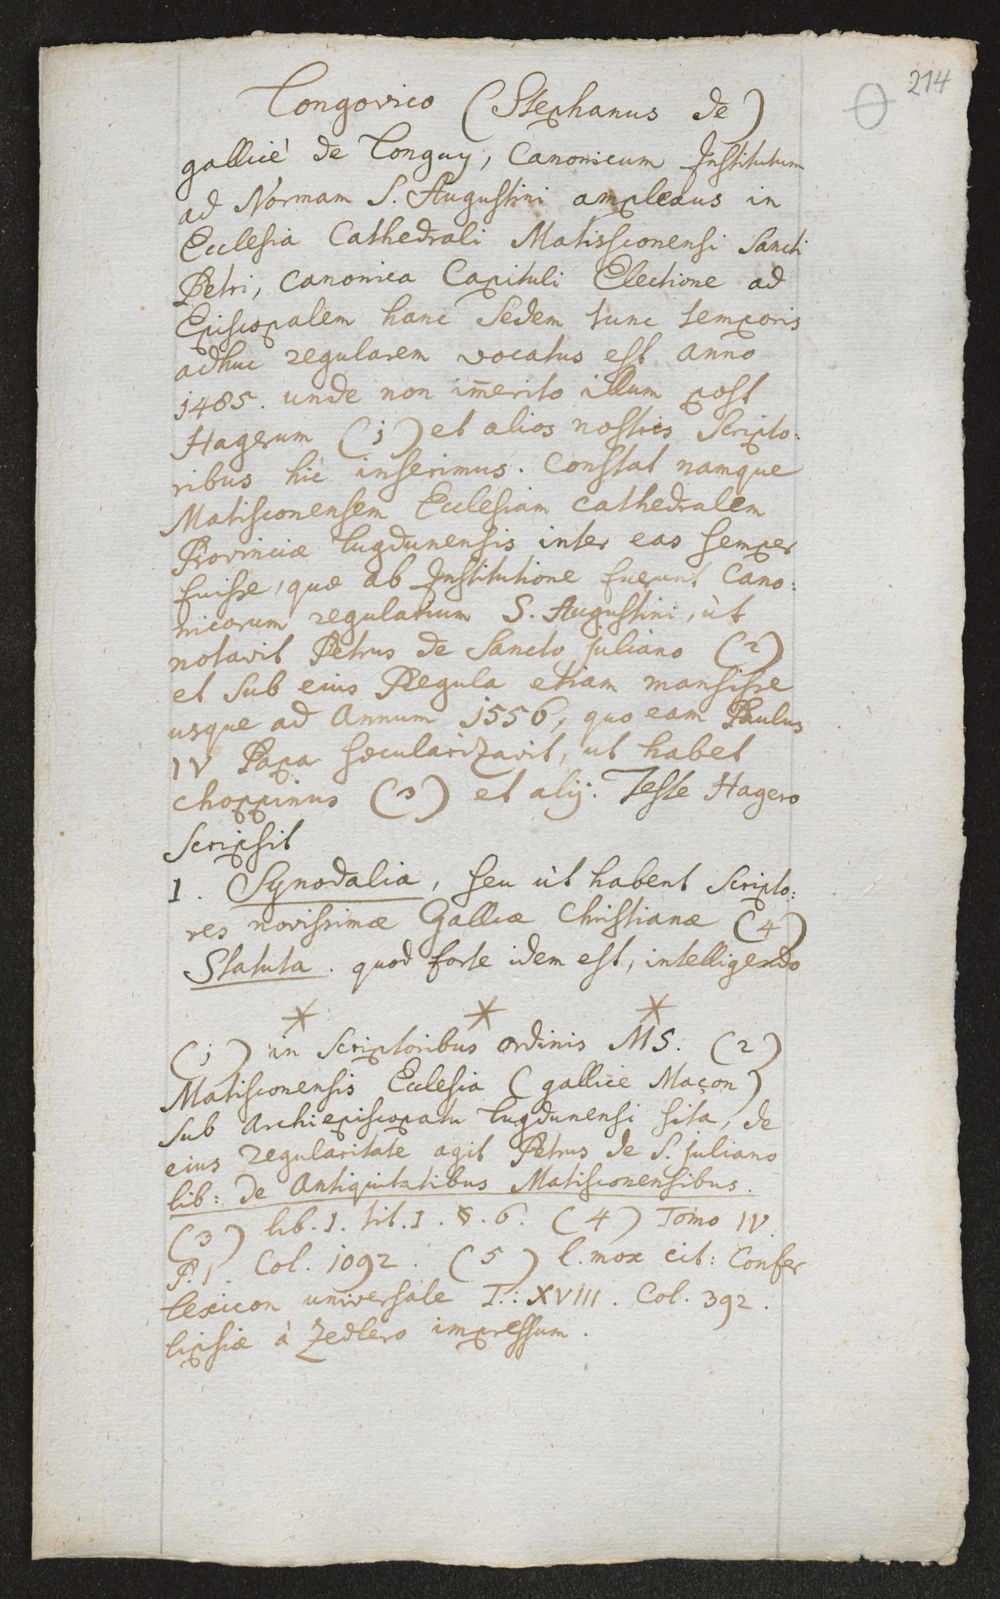 214
Longovico (Stephanus de)
gallicè de Longuy, Canonicum Institutum
ad Normam S. Augustini amplexus in
Ecclesia Cathedrali Matissconensi Sancti
Petri, canonica Capituli Electione ad
Episcopalem hanc Sedem tunc temporis
adhuc regularem vocatus est anno
1485. unde non im̄erito illum post
Hagerum (1) et alios nostris Scripto:
ribus hìc inserimus. Constat namque
Matisconensem Ecclesiam cathedralem
Provinciæ Lugdunensis inter eas semper
fuisse, quæ ab Institutione fuerunt Cano:
nicorum regularium S. Augustini, ùt
notavit Petrus de Sancto Juliano (2)
et sub eius Regula etiam mansisse
usque ad Annum 1556, quo eam Paulus
IV Papa sæcularizavit, ut habet
Choppinus (3) et alij. Teste Hagero
Scripsit
1. Synodalia, seu ùt habent Scripto:
res novissimæ Galliæ Christianæ (4)
Statuta. quod forte idem est, intelligendo
* * *
(1) in Scriptoribus ordinis MS. (2)
Matisconensis Ecclesia (gallice Maçon)
sub Archiepiscopatu Lugdunensi sita, de
eius regularitate agit Petrus de S. Juliano
lib: de Antiquitatibus Matisconensibus.
(3) lib. 1. tit. 1. §. 6. (4) Tomo IV.
P. 1. Col. 1092. (5) l. mox cit: Confer
Lexicon universale T.: XVIII. Col. 392.
Lipsiæ à Zedlero impressum.